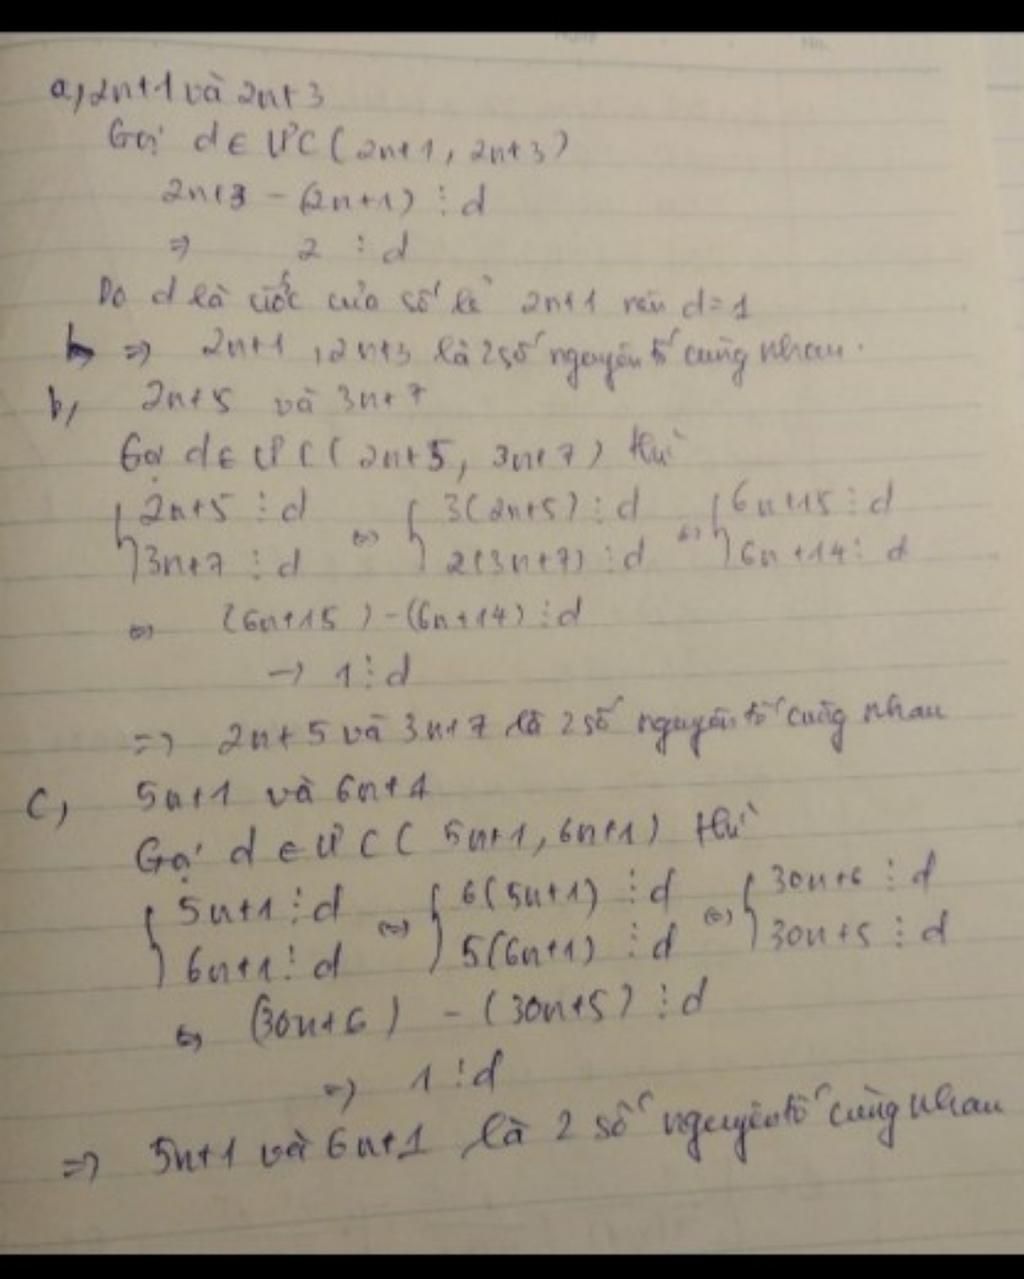 a, 2n+1 và 2n+3
Gọi d ∈ ƯC ( 2n+1 , 2n+3 )
2n+3 - (2n+1) ⋮ d
⇒ 2 ⋮ d
Do d là ước của số lẻ 2n+1 nên d=1
⇒ 2n+1 , 2n+3 là 2 số nguyên tố cùng nhau.
b, 2n+5 và 3n+7
Gọi d ∈ ƯC ( 2n+5, 3n+7 ) thì
{ 2n+5 ⋮ d ⇔ { 3(2n+5) ⋮ d ⇔ { 6n+15 ⋮ d
3n+7 ⋮ d 2(3n+7) ⋮ d 6n+14 ⋮ d
⇔ (6n+15) - (6n+14) ⋮ d
→ 1 ⋮ d
⇒ 2n+5 và 3n+7 là 2 số nguyên tố cùng nhau
c, 5n+1 và 6n+1
Gọi d ∈ ƯC ( 5n+1, 6n+1 ) thì
{ 5n+1 ⋮ d ⇔ { 6(5n+1) ⋮ d ⇔ { 30n+6 ⋮ d
6n+1 ⋮ d 5(6n+1) ⋮ d 30n+5 ⋮ d
⇔ (30n+6) - (30n+5) ⋮ d
⇒ 1 ⋮ d
⇒ 5n+1 và 6n+1 là 2 số nguyên tố cùng nhau